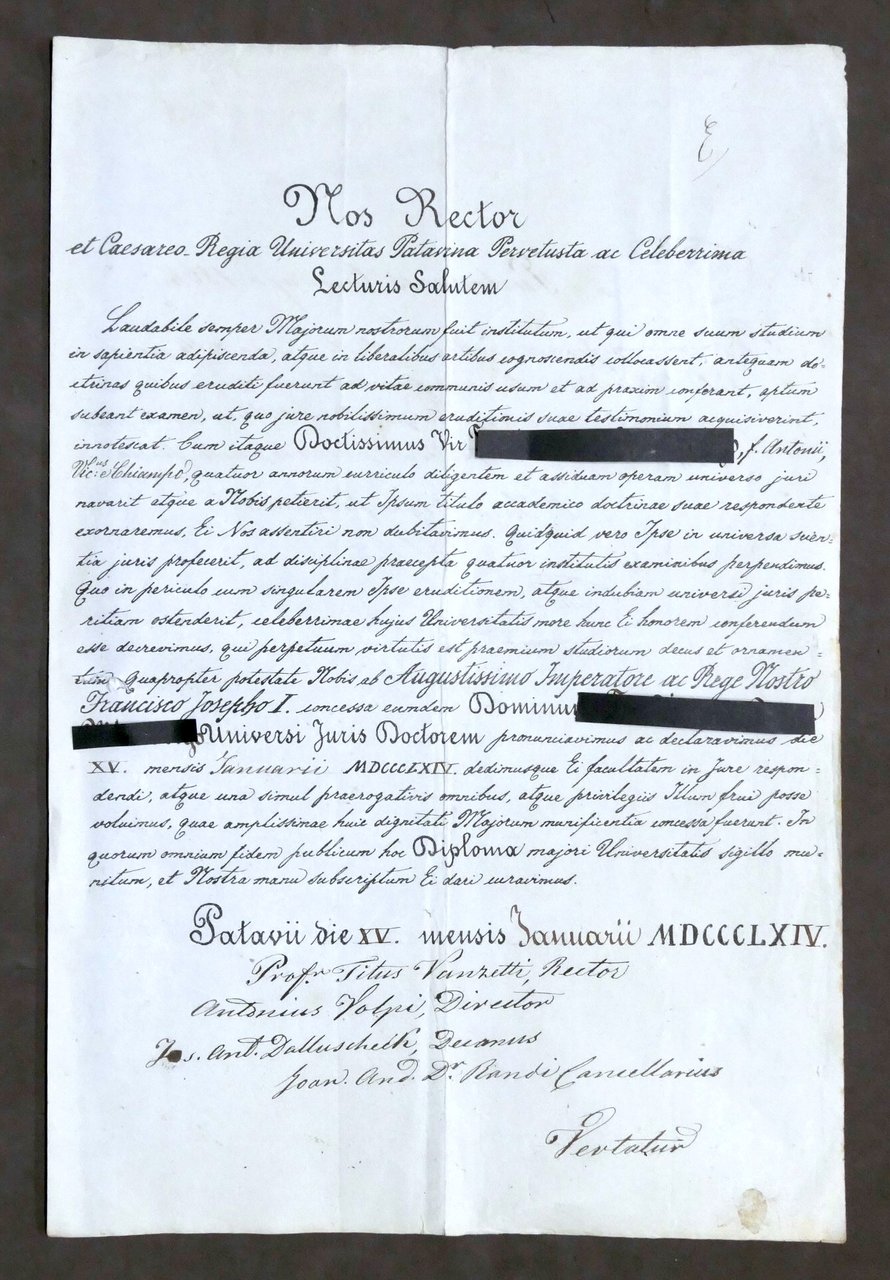 E
Nos Rector
et Caesareo-Regia Universitas Patavina Pervetusta ac Celeberrima
Lecturis Salutem
Laudabile semper Majorum nostrorum fuit institutum, ut qui omne suum studium
in sapientia adipiscenda, atque in liberalibus artibus cognoscendis collocassent, antequam do-
ctrinas quibus eruditi fuerunt ad vitae communis usum et ad praxim conferant, aptum
subeant examen, ut, quo jure nobilissimum eruditionis suae testimonium acquisiverint,
innotescat. Cum itaque Doctissimus Vir f. Antonii,
Vic:us e Chiampo, quatuor annorum curriculo diligentem et assiduam operam universo juri
navarit etque a Nobis petierit, ut Ipsum titulo accademico doctrinae suae respondente
exornaremus, Ei Nos assentiri non dubitavimus. Quidquid vero Ipse in universa scien-
tia juris profecerit, ad disciplinae praecepta quatuor institutis examinibus perpendimus.
Quo in periculo cum singularem Ipse eruditionem, atque indubiam universi juris pe-
ritiam ostenderit, celeberrimae hujus Universitatis more hunc Ei honorem conferendum
esse decrevimus, qui perpetuum virtutis est praemium studiorum decus et ornamen-
tum. Quapropter potestate Nobis ab Augustissimo Imperatore ac Rege Nostro
Francisco Josepho I. concessa eundem Dominum
Universi Juris Doctorem pronunciavimus ac declaravimus die
XV. mensis Januarii MDCCCLXIV. dedimusque Ei facultatem in Jure respon-
dendi, atque una simul praerogativis omnibus, atque privilegiis Illum frui posse
voluimus, quae amplissimae huic dignitati Majorum munificentia concessa fuerunt. In
quorum omnium fidem publicum hoc Diploma majori Universitatis sigillo mu-
nitum, et Nostra manu subscriptum Ei dari curavimus.
Patavii die XV. mensis Januarii MDCCCLXIV.
Profr. Titus Vanzetti, Rector
Antonius Volpi, Director
Jos. Ant. Dalluscheck, Decanus
Joan. And. Dr. Randi Cancellarius
Vertatur